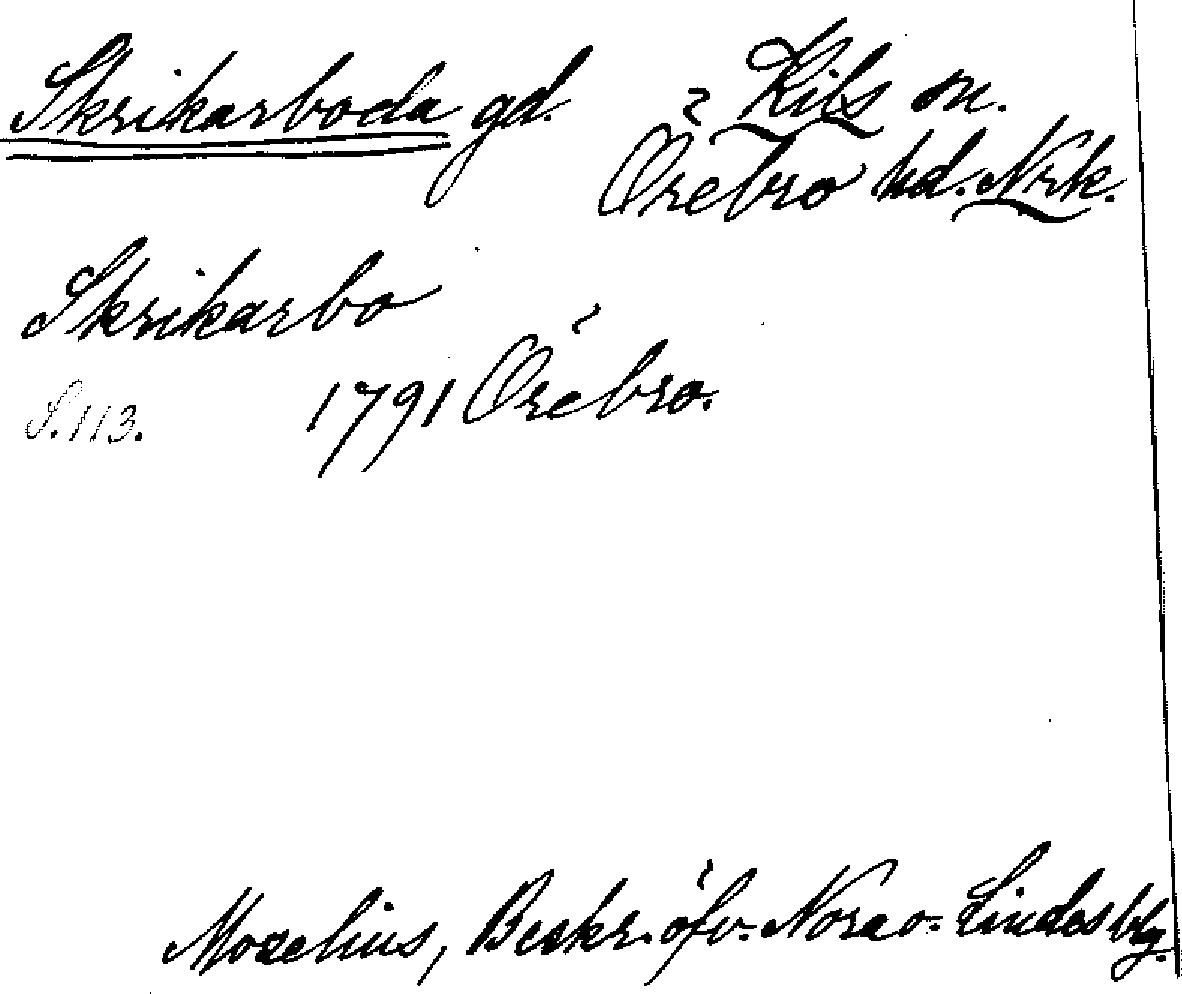 Skrikarboda gd. Kils sn.
Örebro hd. Nrk.
Skrikarbo
S. 113. 1791 Örebro.
Moxelius, Beskr. öfv. Nora o. Lindes blg.